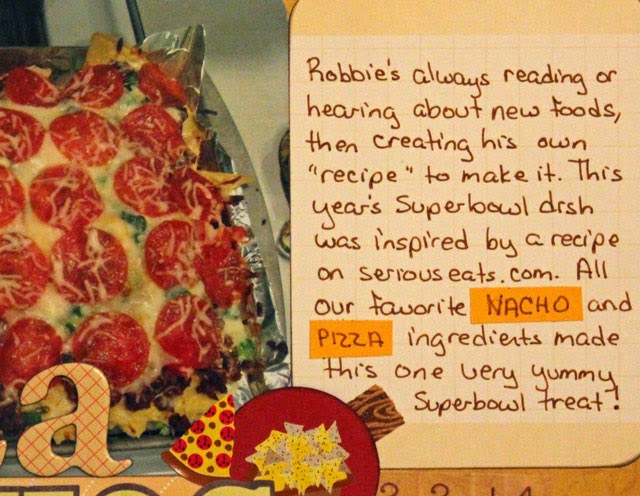 Robbie's always reading or
hearing about new foods,
then creating his own
"recipe" to make it. This
year's Superbowl dish
was inspired by a recipe
on seriouseats.com. All
our favorite NACHO and
PIZZA ingredients made
this one very yummy
Superbowl treat!
a